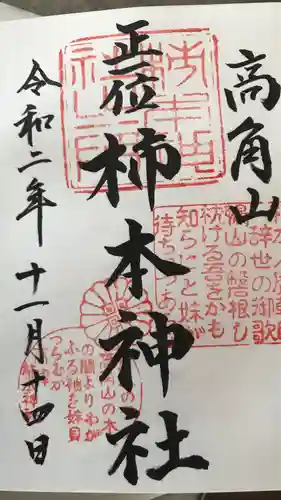 高角山
正一位
柿本神社
令和二年十一月十四日
辞世の御歌
鴨山の磐根し
枕ける吾をかも
知らにと妹が
待ちつつあ
山の木
の間よりわが
ふる袖を妹見
つらむか